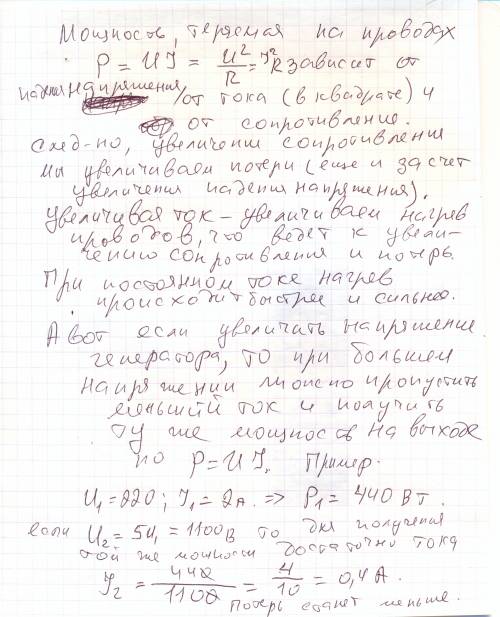 Мощность, теряемая на проводах
P = UI = U²/R = I²R зависит от
падения напряжения/от тока (в квадрате) и
от сопротивление.
След-но, увеличении сопротивления
мы увеличиваем потери (еще и за счет
увеличения падения напряжения).
Увеличивая ток – увеличиваем нагрев
проводов, что ведет к увели-
чению сопротивления и потерь.
При постоянном токе нагрев
происходит быстрее и сильнее.
А вот если увеличить напряжение
генератора, то при большем
напряжении можно пропустить
меньший ток и получить
ту же мощность на выходе
по P = UI. Пример.
U₁ = 220; I₁ = 2А. => P₁ = 440 Вт.
если U₂ = 5U₁ = 1100 В то для получения
той же мощности достаточно тока
I₂ = 440/1100 = 4/10 = 0,4 А.
Потерь станет меньше.